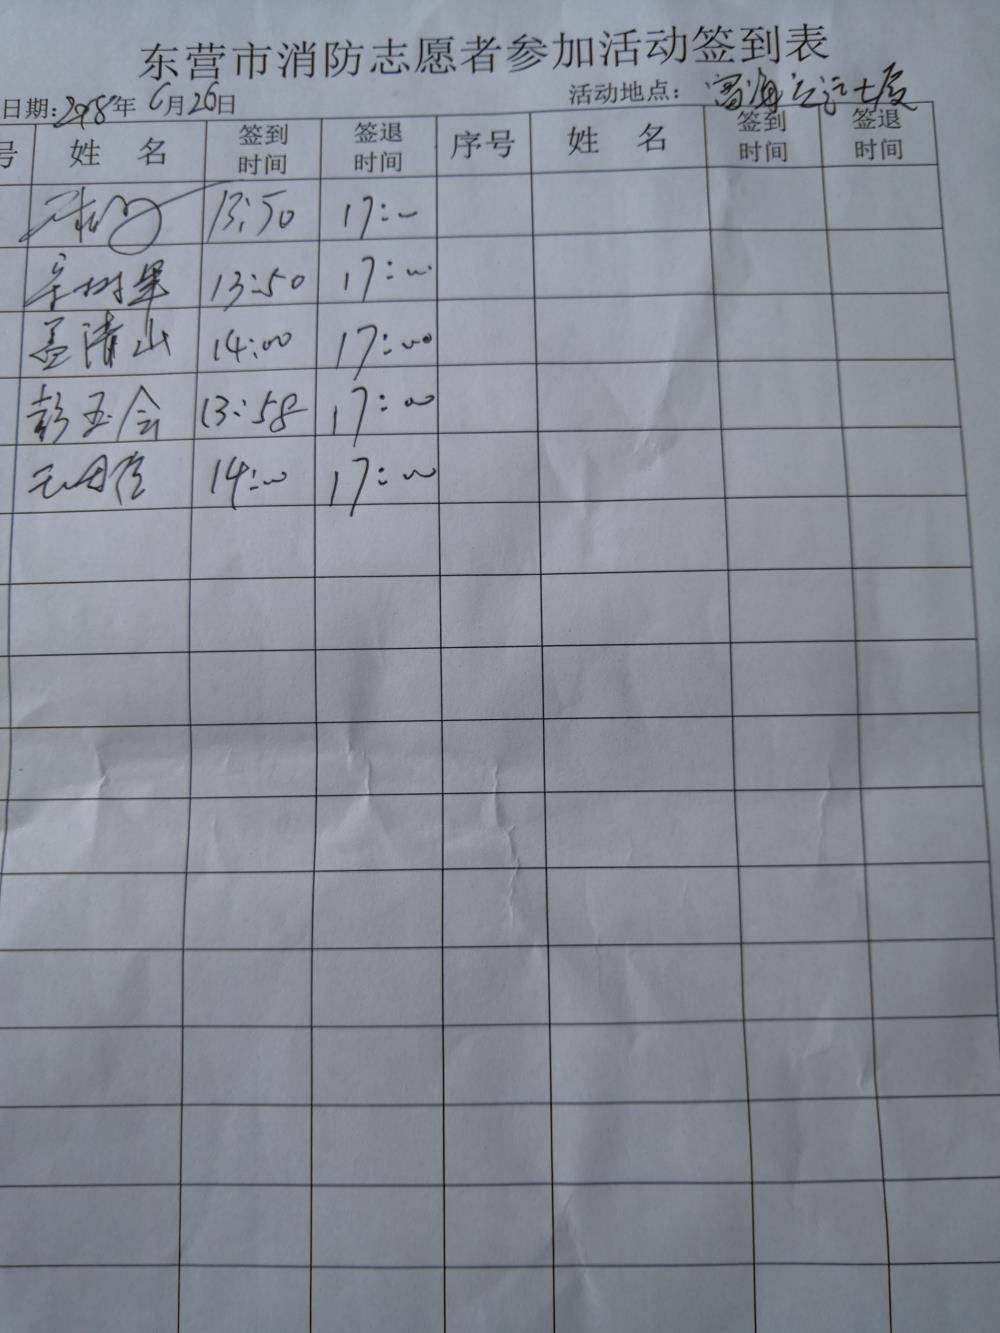 东营市消防志愿者参加活动签到表
日期：2018年6月26日 活动地点：富海
号 姓 名 签到时间 签退时间 序号 姓 名 签到时间 签退时间
13:50 17:00
13:50 17:00
孟清山 14:00 17:00
彭玉会 13:58 17:00
14:00 17:00